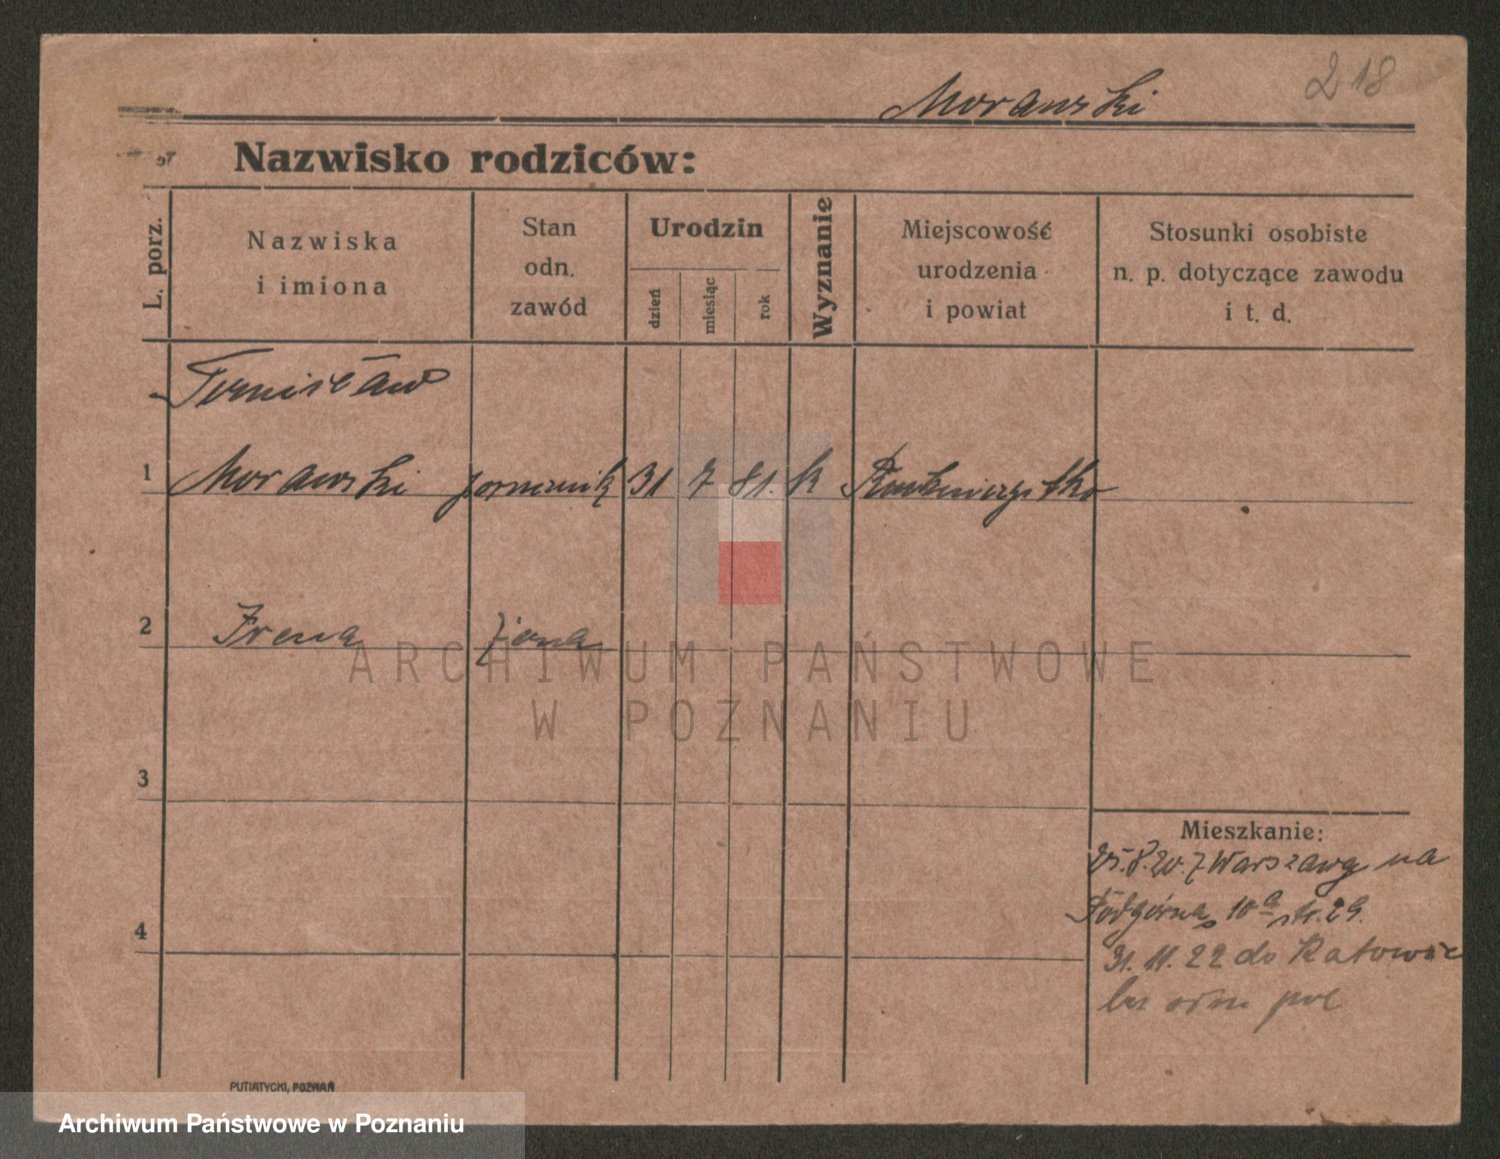 218
Morawski
Nazwisko rodziców:
L. porz.
Nazwiska
i imiona
Stan
odn.
zawód
Urodzin
dzień
miesiąc
rok
Wyznanie
Miejscowość
urodzenia
i powiat
Stosunki osobiste
n. p. dotyczące zawodu
i t. d.
1
Morawski 31 7 81. k
2
Irena żona
ARCHIWUM PAŃSTWOWE
W POZNANIU
3
Mieszkanie:
25.8.20. z Warszawy na
Podgórna 10a str. 29.
4
31.11.22 do Katowic
bez odm pol
PUTIATYCKI, POZNAŃ
Archiwum Państwowe w Poznaniu